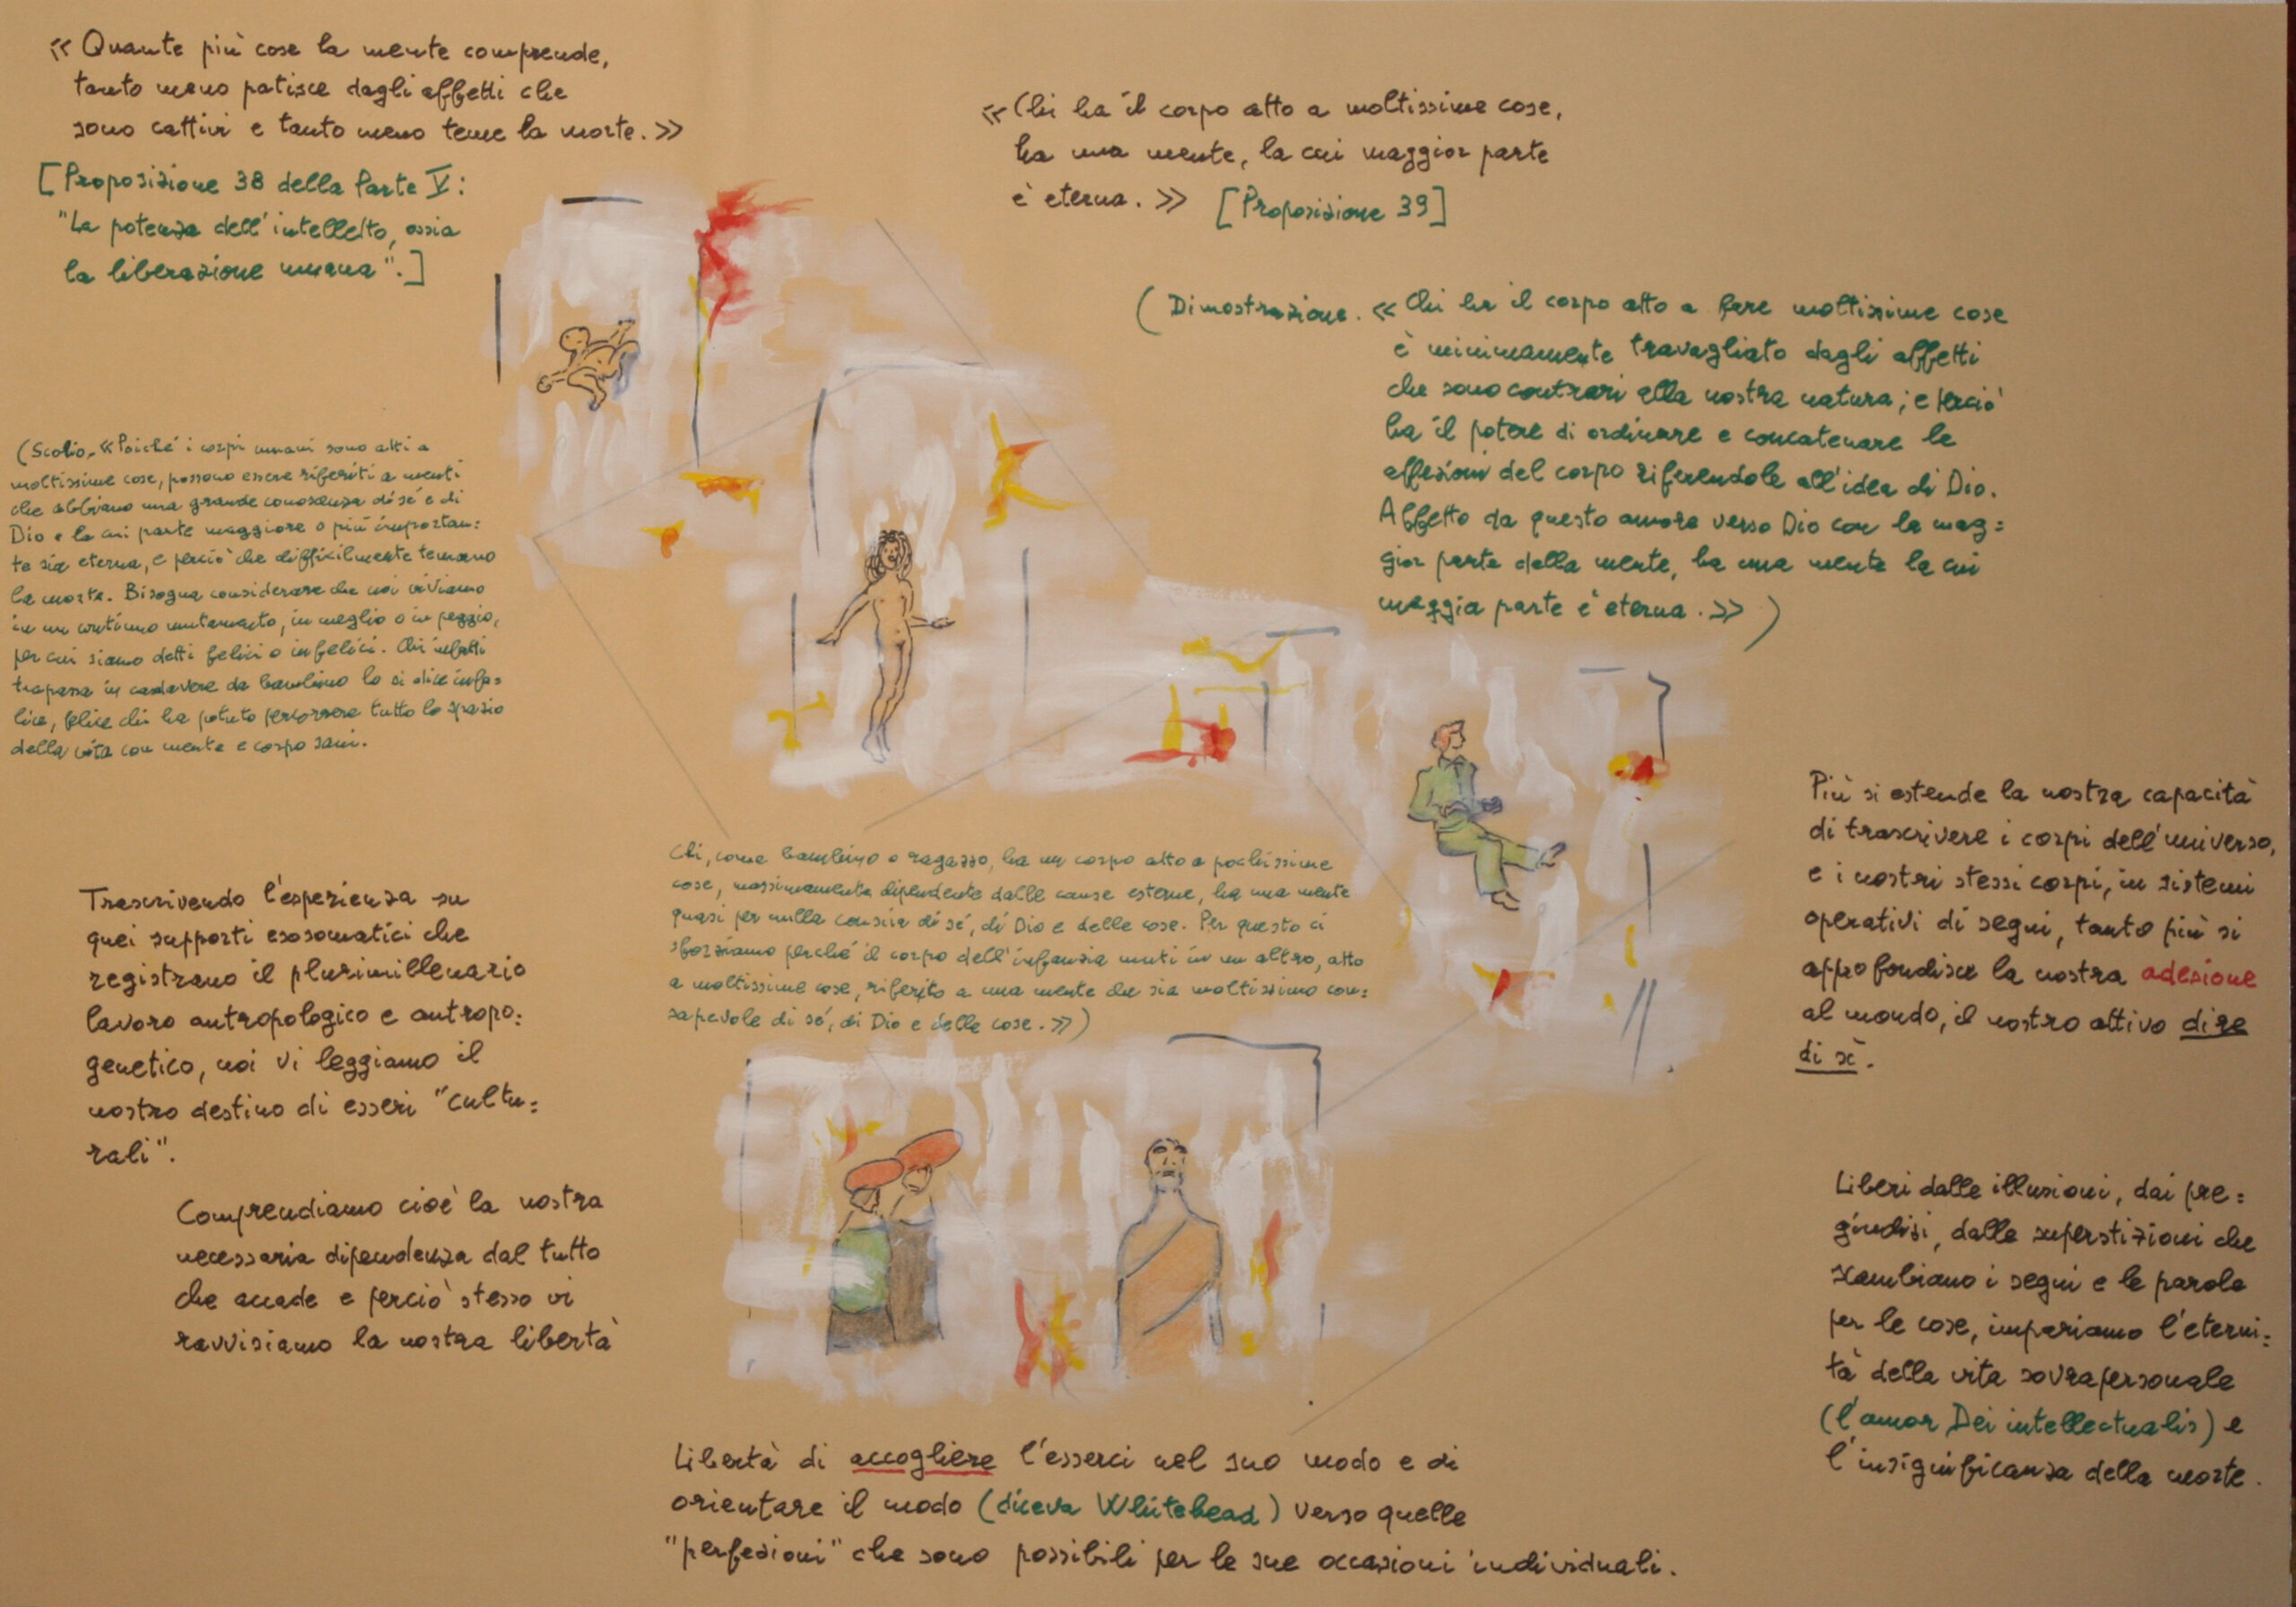 « Quante più cose la mente comprende,
tanto meno patisce dagli affetti che
sono cattivi e tanto meno teme la morte. »
[Proposizione 38 della Parte V:
"La potenza dell'intelletto, ossia
la liberazione umana".]
« Chi ha il corpo atto a moltissime cose,
ha una mente, la cui maggior parte
è eterna. » [Proposizione 39]
(Dimostrazione. « Chi ha il corpo atto a fare moltissime cose
è minimamente travagliato dagli affetti
che sono contrari alla nostra natura; e perciò
ha il potere di ordinare e concatenare le
affezioni del corpo riferendole all'idea di Dio.
Affetto da questo amore verso Dio con la mag=
gior parte della mente, ha una mente la cui
maggia parte è eterna. »)
(Scolio. « Poiché i corpi umani sono atti a
moltissime cose, possono essere riferiti a menti
che abbiano una grande conoscenza di sé e di
Dio e la cui parte maggiore o più importan=
te sia eterna, e perciò che difficilmente temano
la morte. Bisogna considerare che noi viviamo
in un continuo mutamento, in meglio o in peggio,
per cui siamo detti felici o infelici. Chi infatti
trapassa in cadavere da bambino lo si dice infe=
lice, felice chi ha potuto percorrere tutto lo spazio
della vita con mente e corpo sani.
Chi, come bambino o ragazzo, ha un corpo atto a pochissime
cose, massimamente dipendente dalle cause esterne, ha una mente
quasi per nulla conscia di sé, di Dio e delle cose. Per questo ci
sforziamo perché il corpo dell'infanzia muti in un altro, atto
a moltissime cose, riferito a una mente che sia moltissimo con=
sapevole di sé, di Dio e delle cose. »)
Trascrivendo l'esperienza su
quei supporti esosomatici che
registrano il plurimillenario
lavoro antropologico e antropo=
genetico, noi vi leggiamo il
nostro destino di esseri "cultu=
rali".
Comprendiamo cioè la nostra
necessaria dipendenza dal tutto
che accade e perciò stesso vi
ravvisiamo la nostra libertà
Libertà di accogliere l'esserci nel suo modo e di
orientare il modo (diceva Whitehead) verso quelle
"perfezioni" che sono possibili per le sue occasioni individuali.
Più si estende la nostra capacità
di trascrivere i corpi dell'universo,
e i nostri stessi corpi, in sistemi
operativi di segni, tanto più si
approfondisce la nostra adesione
al mondo, il nostro attivo dire
di sì.
Liberi dalle illusioni, dai pre=
giudizi, dalle superstizioni che
scambiano i segni e le parole
per le cose, impariamo l'eterni=
tà della vita sovrapersonale
(l'amor Dei intellectualis) e
l'insignificanza della morte.